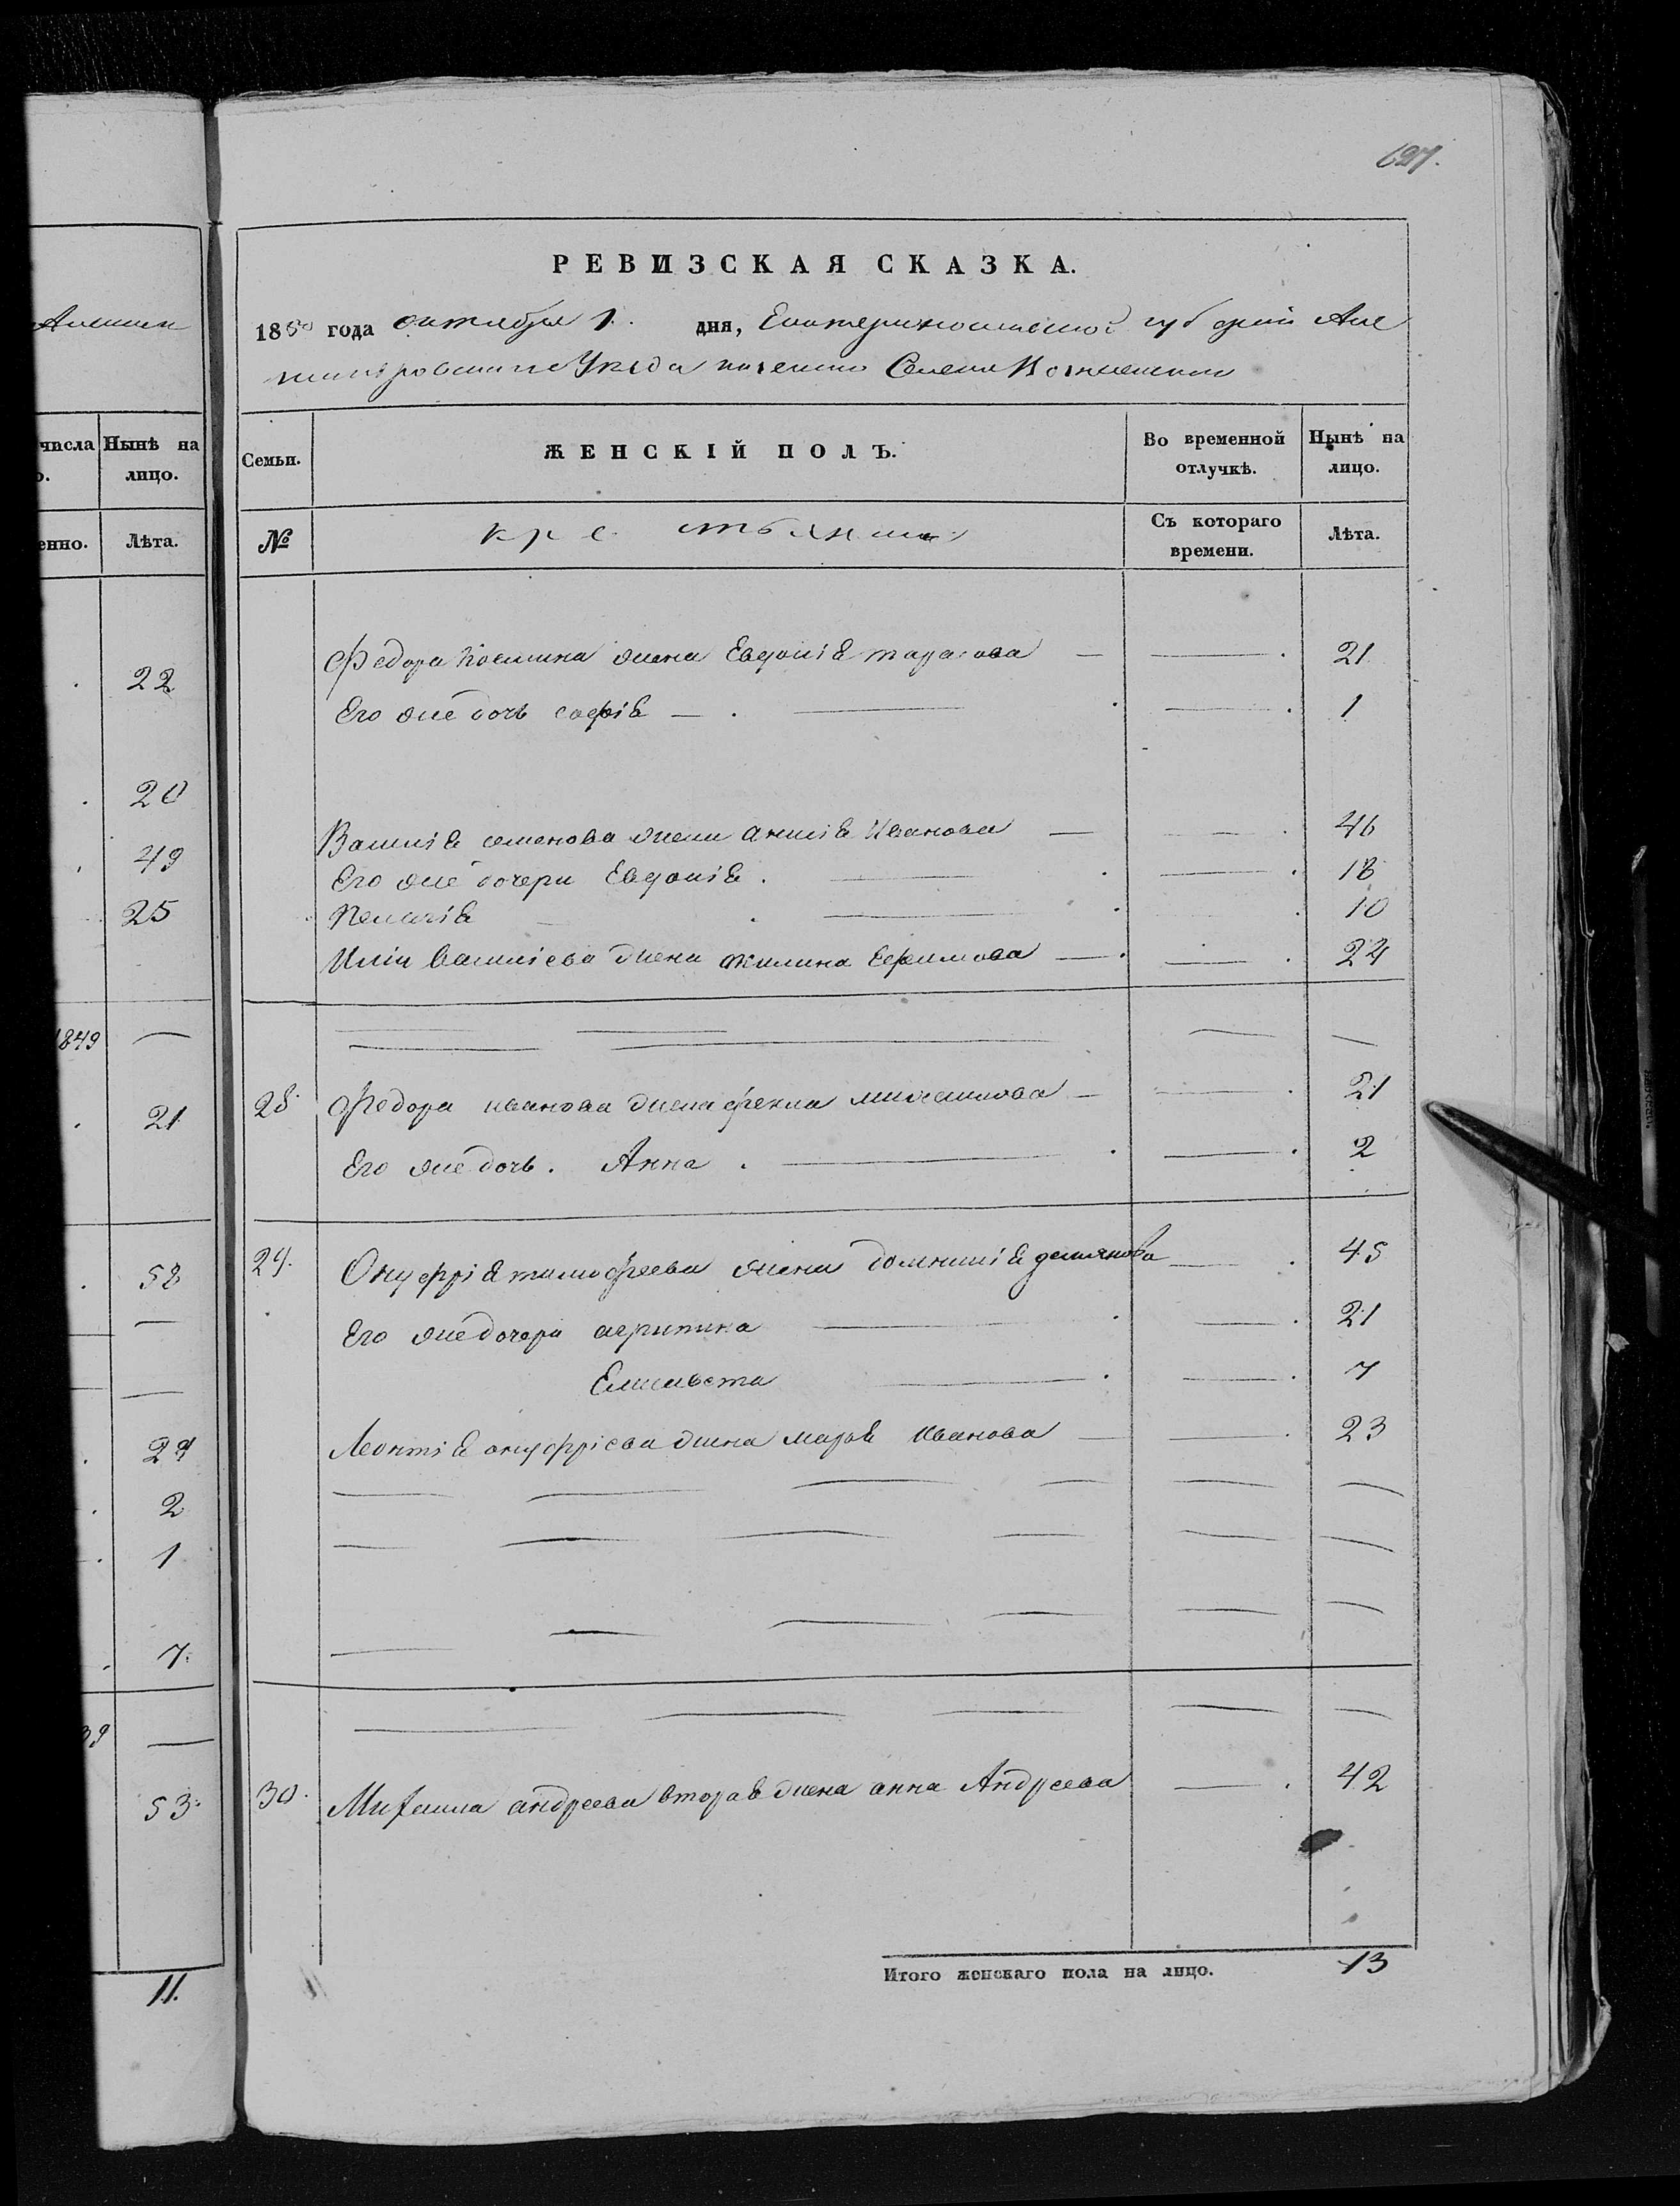 697.
РЕВИЗСКАЯ СКАЗКА.
1850 года октября 1. дня, Екатеринославской губернии Але
ксандровскаго Уезда казеннаго Селения Вознесенки
числа Нынѣ на
лицо.
енно. Лѣта.
22
20
49
25
1849 —
21
58
—
—
29
2
1
7.
39 —
53.
11.
Семьи. ЖЕНСКІЙ ПОЛЪ. Во временной отлучкѣ. Нынѣ на лицо.
№ крестьянки Съ котораго времени. Лѣта.
Федора Косьмина жена Евдокія тарасова — — 21
Его же дочь софія — — 1
Василія семенова жена анисія Иванова — — 46
Его же дочери Евдокія — — 18
Пелагія — — 10
Ильи Василіева жена акилина Ефимова — — 24
28 Федора иванова жена фекла михаилова — — 21
Его же дочь. Анна — — 2
29. Онуфрія тимофеева жена домникія демянова — 45
Его же дочери агрипина — — 21
Елисавета — — 7
Леонтія онуфріева жена марья Иванова — — 23
30. Михаила андреева вторая жена анна Андреева — 42
Итого женскаго пола на лицо. 13